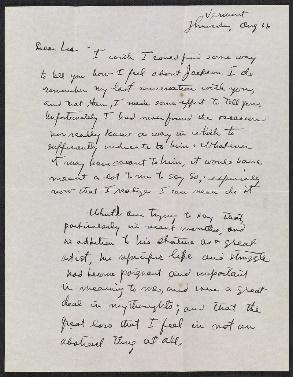 Vermont
Thursday, Aug 16
Dear Lee -
I wish I could find some way
to tell you how I feel about Jackson. I do
remember my last conversation with you,
and that then, I made some effort to tell you.
Unfortunately I had never found the occasion
nor really knew a way in which to
sufficiently indicate to him. Whatever
it may have meant to him, it would have
meant a lot to me to say so; especially
now that I realize I can never do it
What I am trying to say that,
particularly in recent months, and
in addition to his stature as a great
artist, his specific life and struggle
had become poignant and important
in meaning to me, and were a great
deal in my thoughts; and that the
great loss that I feel is not an
abstract thing at all.